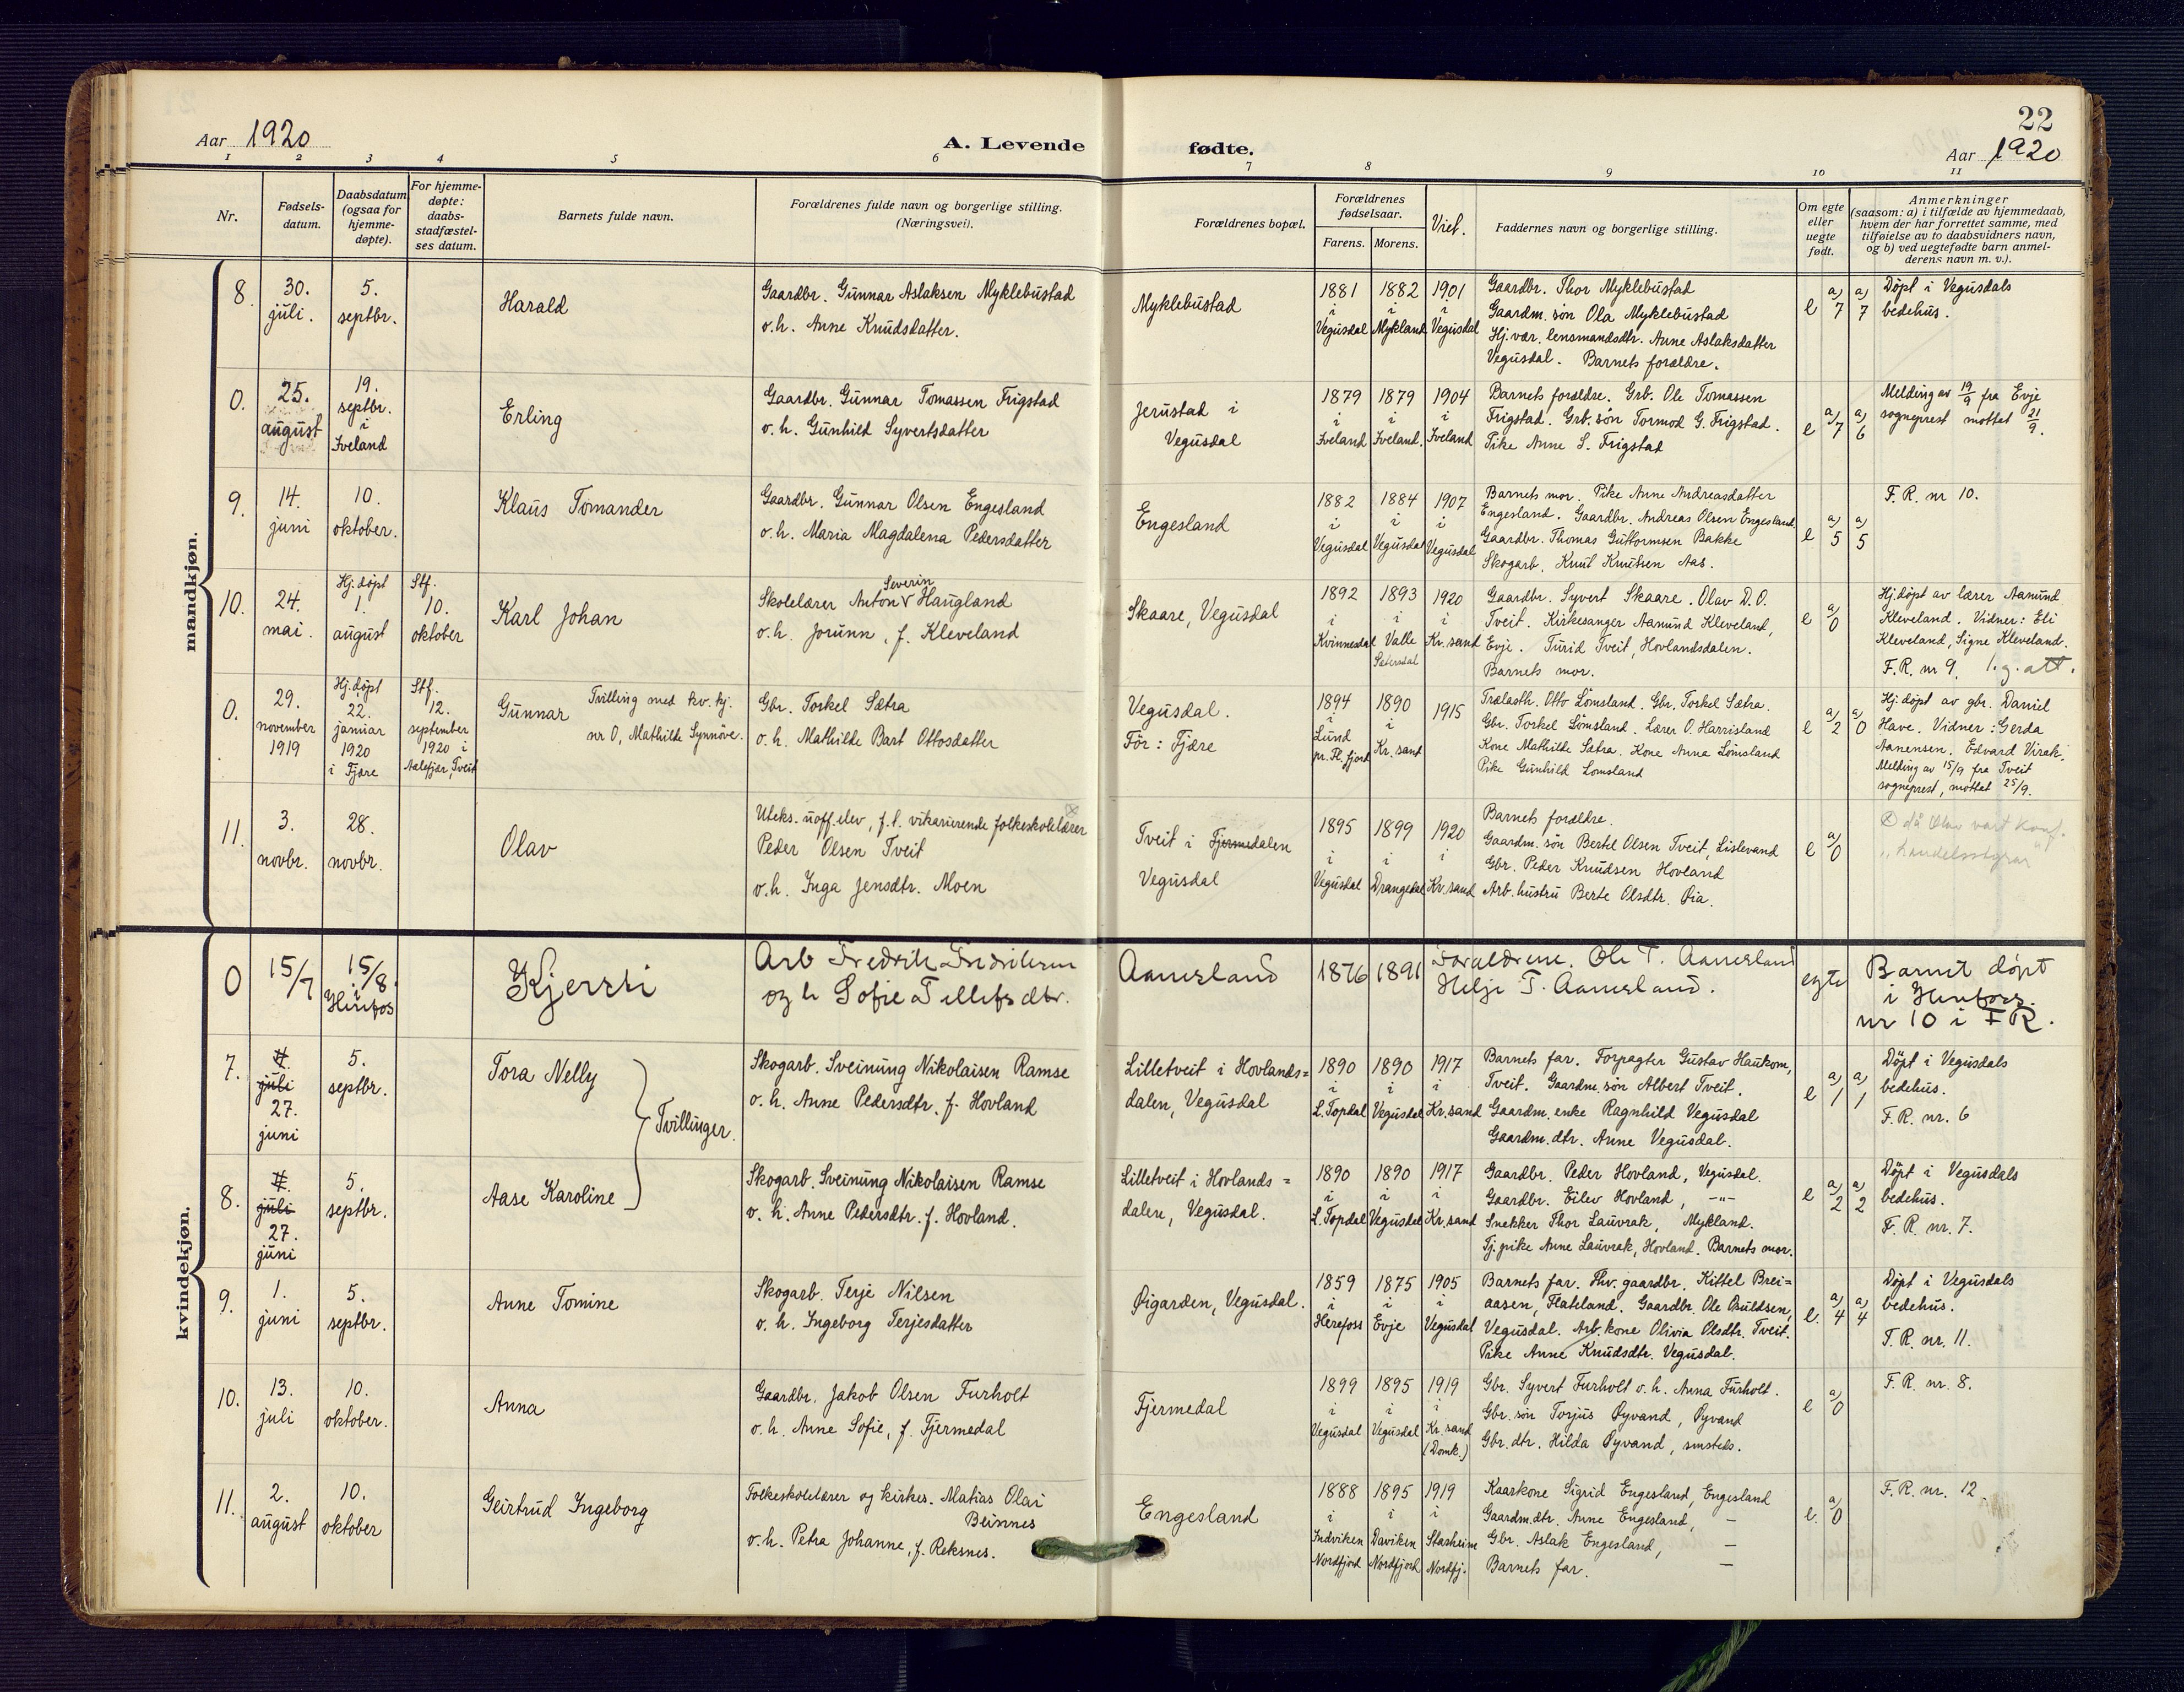 22
Aar 1920
A. Levende fødte.
Aar 1920
1 2 3 4 5 6 7 8 9 10 11
Nr.
Fødsels-
datum.
Daabsdatum
(ogsaa for
hjemme-
døpte).
For hjemme-
døpte:
daabs-
stadfæstel-
ses datum.
Barnets fulde navn.
Forældrenes fulde navn og borgerlige stilling.
(Næringsvei).
Forældrenes bopæl.
Forældrenes
fødselsaar.
Farens. Morens.
Viet.
Faddernes navn og borgerlige stilling.
Om egte
eller
uegte
født.
Anmerkninger
(saasom: a) i tilfælde av hjemmedaab,
hvem der har forrettet samme, med
tilføielse av to daabsvidners navn,
og b) ved uegtefødte barn anmel-
derens navn m. v.).
mandkjøn.
8.
30.
juli.
5.
septbr.
Harald
Gaardbr. Gunnar Aslaksen Myklebustad
o.h. Anne Knudsdatter.
Myklebustad
1881
i
Vegusdal
1882
i
Mykland
1901
i
Vegusdal
Gaardbr. Thor Myklebustad
Gaardm. søn Ola Myklebustad
Hj. vær. lensmandsdtr. Anne Aslaksdatter
Vegusdal. Barnets forældre.
e a) 7 a) 7
Døpt i Vegusdals
bedehus.
0.
25.
august
19.
septbr.
i
Iveland
Erling
Gaardbr. Gunnar Tomassen Frigstad
o. h. Gunhild Syvertsdatter
Jerustad i
Vegusdal
1879
i
Iveland
1879
i
Iveland.
1904
i
Iveland
Barnets forældre. Grb. Ole Tomassen
Frigstad. Grb. søn Tormod G. Frigstad.
Pike Anne S. Frigstad
e a) 7 a) 6
Melding av 19/9 fra Evje
sogneprest mottat 21/9.
9.
14.
juni
10.
oktober.
Klaus Tomander
Gaardbr. Gunnar Olsen Engesland
o. h. Maria Magdalena Pedersdatter
Engesland
1882
i
Vegusdal
1884
i
Vegusdal
1907
i
Vegusdal
Barnets mor. Pike Anne Andreasdatter
Engesland. Gaardbr. Andreas Olsen Engesland.
Gaardbr. Thomas Guttormsen Bakke
Skogarb. Knut Knutsen Aas.
e a) 5 a) 5
F. R. nr 10.
10.
24.
mai.
Hj. døpt
1.
august
Stf.
10.
oktober
Karl Johan
Severin
Skolelærer Anton Haugland
o.h. Jorunn, f. Kleveland
Skaare, Vegusdal
1892
i
Kvinnesdal
1893
i
Valle
Setersdal
1920
i
Kr. sand
Gaardbr. Syvert Skaare. Olav D. O.
Tveit. Kirkesanger Aamund Kleveland,
Evje. Turid Tveit, Hovlandsdalen.
Barnets mor.
e a) 0
Hj. døpt av lærer Aamund
Kleveland. Vidner: Eli
Kleveland, Signe Kleveland.
F. R. nr 9. l. g. att.
0.
29.
november
1919
Hj. døpt
22.
januar
1920
i Fjære
Stf.
12.
september
1920 i
Aalefjær, Tveit
Gunnar
Tvilling med kv. kj.
nr 0, Mathilde Synnøve.
Gbr. Torkel Sætra
o. h. Mathilde Bart Ottosdatter
Vegusdal.
Før: Fjære
1894
i
Lund
pr. Fl. fjord
1890
i
Kr. sand
1915
Trælasth. Otto Lømsland. Gbr. Torkel Sætra.
Gbr. Torkel Lømsland. Lærer O. Harrisland
Kone Mathilde Sætra. Kone Anna Lømsland
Pike Gunhild Lømsland
e a) 2 a) 0
Hj. døpt av gbr. Daniel
Have. Vidner: Gerda
Aanensen, Edvard Virak.
Melding av 15/9 fra Tveit
sogneprest, mottat 25/9.
11.
3.
novbr.
28.
novbr.
Olav
Uteks. uoff. elev, f. t. vikarierende folkeskolelærer
Peder Olsen Tveit
o. h. Inga Jensdtr. Moen
Tveit i Fjermedalen
Vegusdal
1895
i
Vegusdal
1899
i
Drangedal
1920
i
Kr. sand
Barnets forældre.
Gaardm. søn Bertel Olsen Tveit, Lislevand
Gbr. Peder Knudsen Hovland
Arb. hustru Berte Olsdtr. Øia.
e a) 0
då Olav vart konf.
„handelsstyrar"
kvindekjøn.
0
15/7
15/8.
i
Herefos
Kjersti
Arb Fredrik Fredriksen
og h Sofie Tellefsdtr.
Aanesland
1876
1891
Forældrene. Ole T. Aanesland
Helje T. Aanesland.
egte
Barnet døpt
i Herefoss.
nr 10 i F R.
7.
juli
27.
juni
5.
septbr.
Tora Nelly
Tvillinger.
Skogarb. Sveinung Nikolaisen Ramse
o. h. Anne Pedersdtr. f. Hovland
Lilletveit i Hovlands=
dalen, Vegusdal
1890
i
L. Topdal
1890
i
Vegusdal
1917
i
Kr. sand
Barnets far. Forpagter Gustav Haukom,
Tveit. Gaardm. søn Albert Tveit.
Gaardm. enke Ragnhild Vegusdal
Gaardm. dtr. Anne Vegusdal.
e a) 1 a) 1
Døpt i Vegusdals
bedehus.
F. R. nr. 6
8.
juli
27.
juni
5.
septbr.
Aase Karoline
Skogarb. Sveinung Nikolaisen Ramse
o. h. Anne Pedersdtr. f. Hovland.
Lilletveit i Hovlands =
dalen, Vegusdal.
1890
i
L. Topdal
1890
i
Vegusdal
1917
i
Kr. sand
Gaardbr. Peder Hovland, Vegusdal.
Gaardbr. Eilev Hovland, -"-
Snekker Thor Lauvrak, Mykland.
Tj. pike Anne Lauvrak, Hovland. Barnets mor.
e a) 2 a) 2
Døpt i Vegusdals
bedehus.
F. R. nr. 7.
9.
1.
juni
5.
septbr.
Anne Tomine
Skogarb. Terje Nilsen
o. h. Ingeborg Terjesdatter
Øigarden, Vegusdal.
1859
i
Herefoss
1875
i
Evje
1905
i
Vegusdal
Barnets far. Fhv. gaardbr. Kittel Brei=
aasen, Flateland. Gaardbr. Ole Osuldsen,
Vegusdal. Arb. kone Olivia Olsdtr. Tveit.
Pike Anne Knudsdtr. Vegusdal.
e. a) 4 a) 4
Døpt i Vegusdals
bedehus.
F. R. nr. 11.
10.
13.
juli
10.
oktober.
Anna
Gaardbr. Jakob Olsen Furholt
o. h. Anne Sofie, f. Fjermedal
Fjermedal
1899
i
Vegusdal
1895
i
Vegusdal
1919
i
Kr. sand
(Domk.)
Gbr. Syvert Furholt o. h. Anna Furholt.
Gbr. søn Torjus Øyvand, Øyvand
Gbr. dtr. Hilda Øyvand, smsteds.
e a) 0
F. R. nr. 8.
11.
2.
august
10.
oktober
Geirtrud Ingeborg
Folkeskolelærer og kirkes. Matias Olai
Beinnes
o. h. Petra Johanne, f. Reksnes.
Engesland
1888
i
Indviken
Nordfjord
1895
i
Daviken
Nordfjord
1919
i
Starheim
Nordfj.
Kaarkone Sigrid Engesland, Engesland
Gaardm. dtr. Anne Engesland, —
Gbr. Aslak Engesland, —
Barnets far. —
e. a) 0
F. R. nr. 12